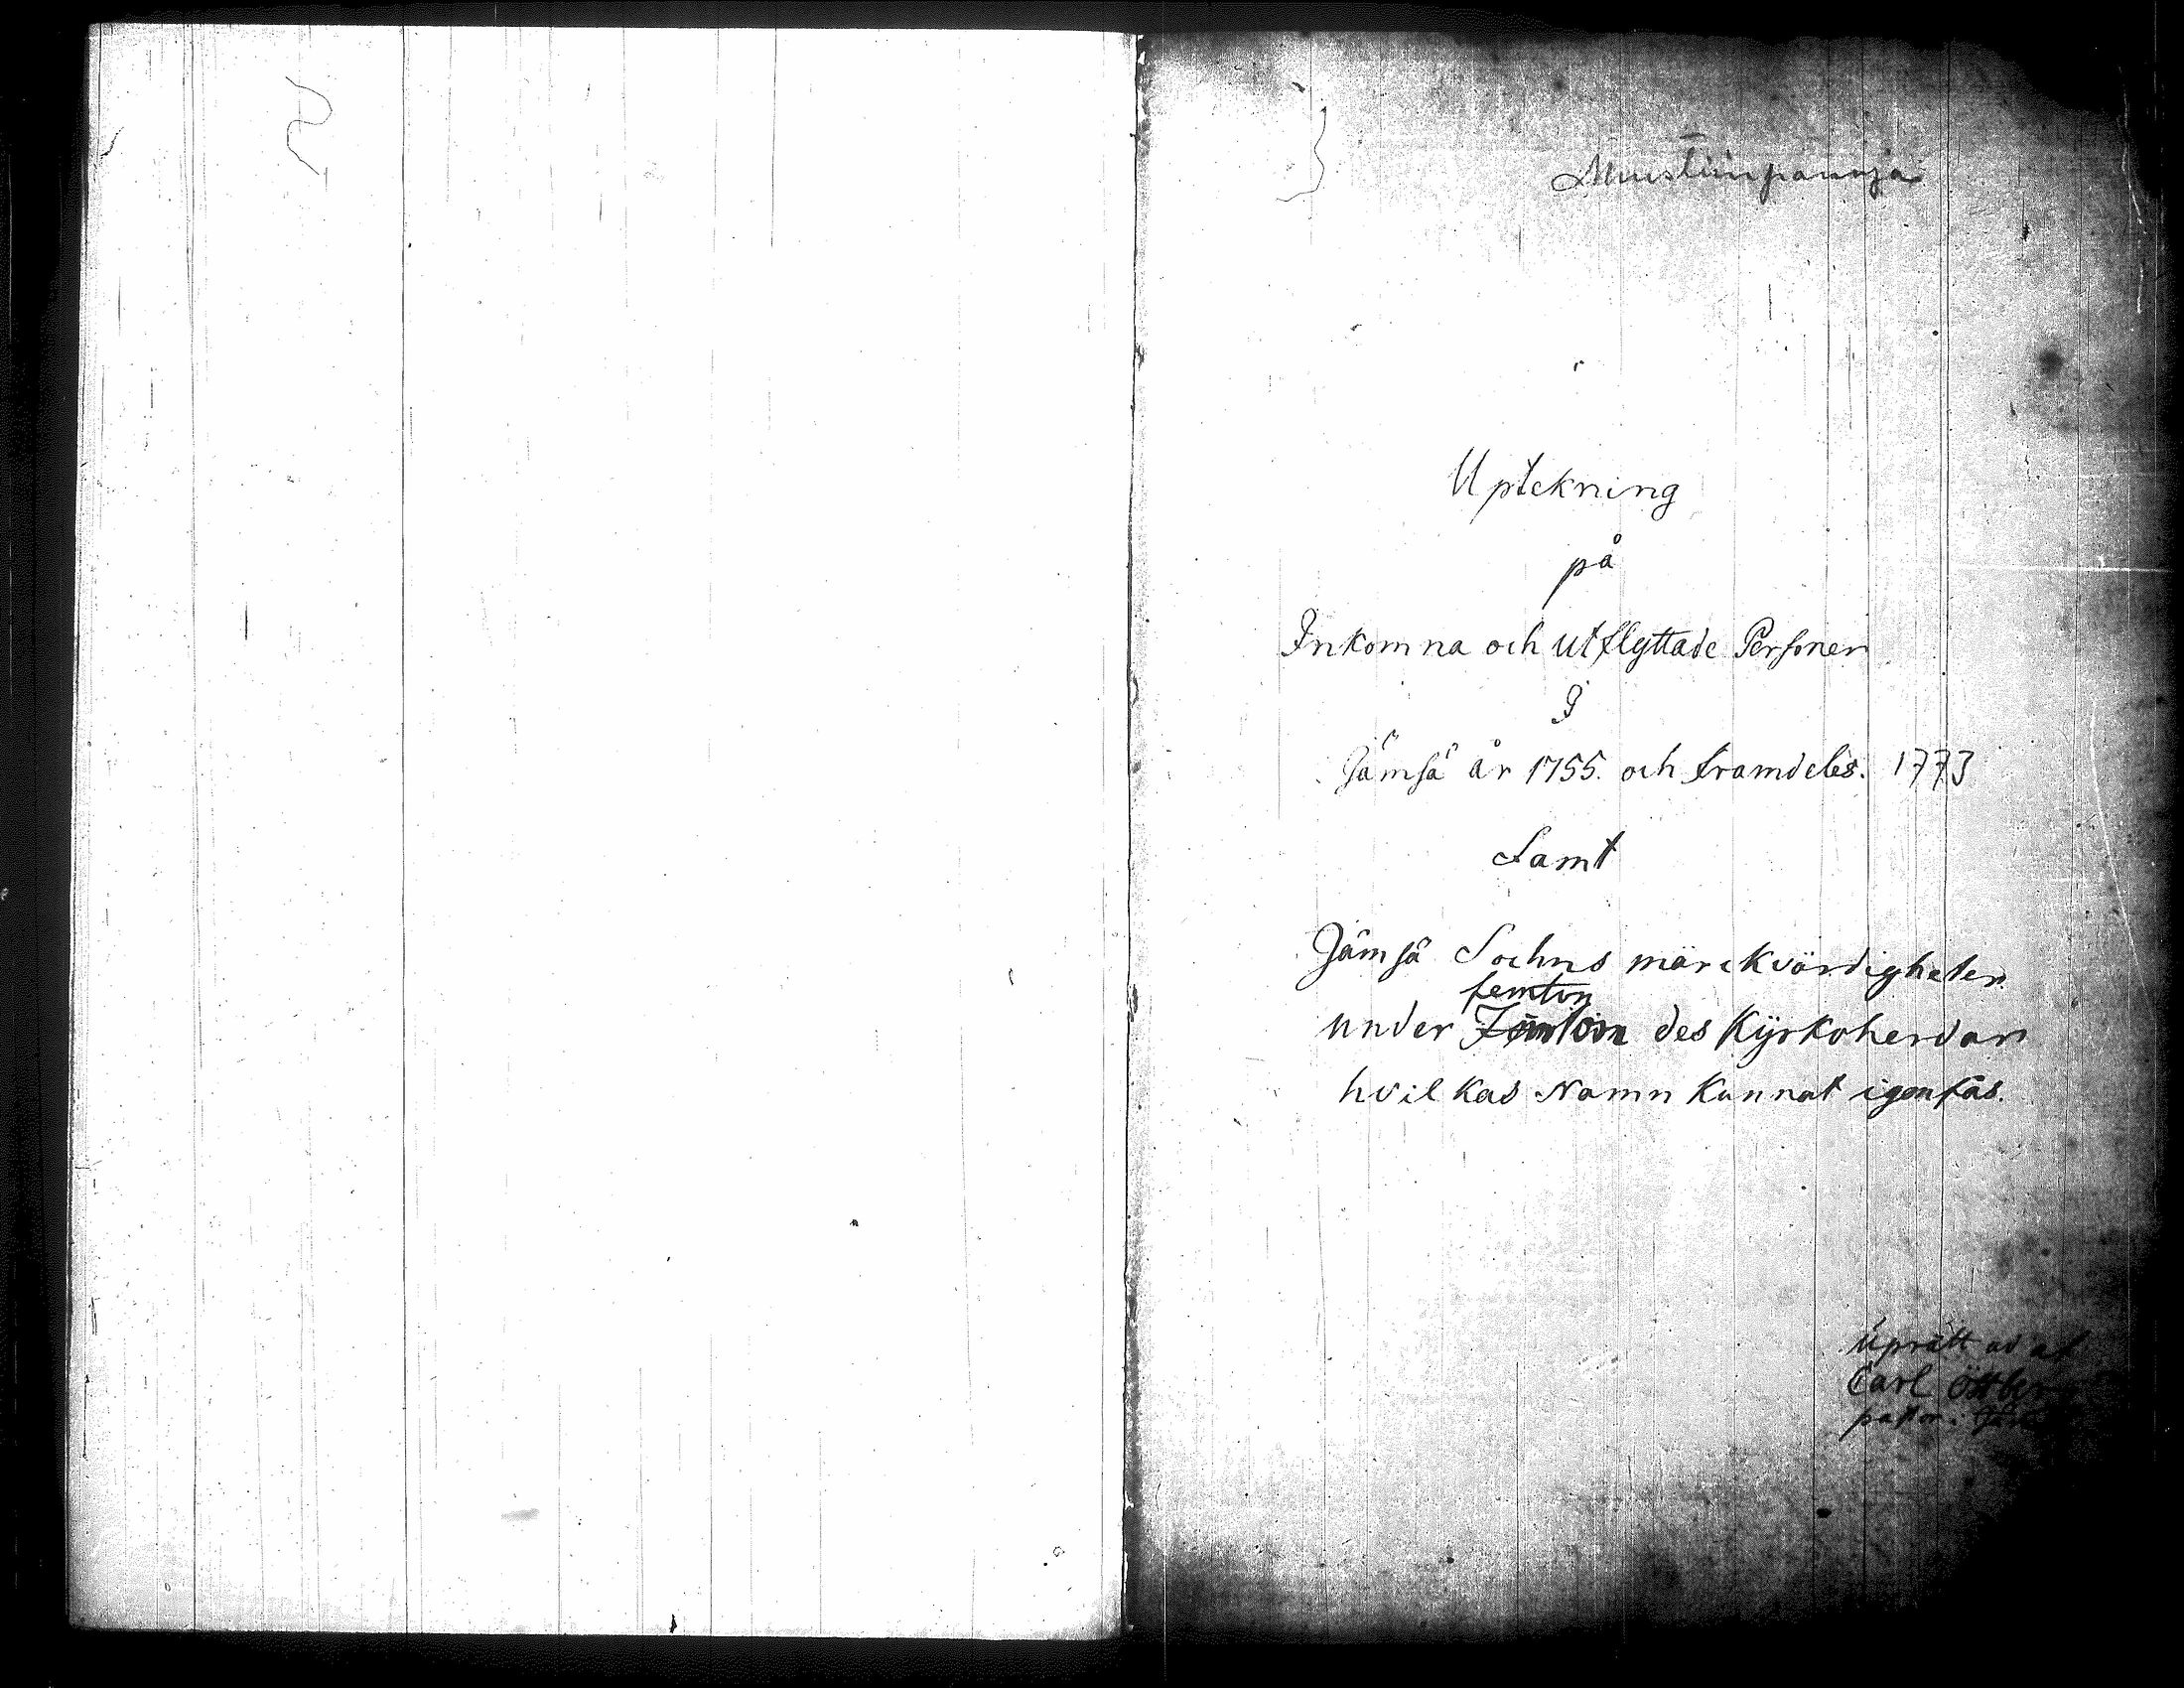 Muistiinpanoja
Uptekning
på
Inkomna och utflyttade Personer
I
Jämsä år 1755. och framdeles. 1773
Samt
Jämsä Sochns märckvärdigheter
femton
under des Kyrkoherdar
hvilkas Namn Kunnat igenfås.
Uprätt ad af
Carl
pastor i